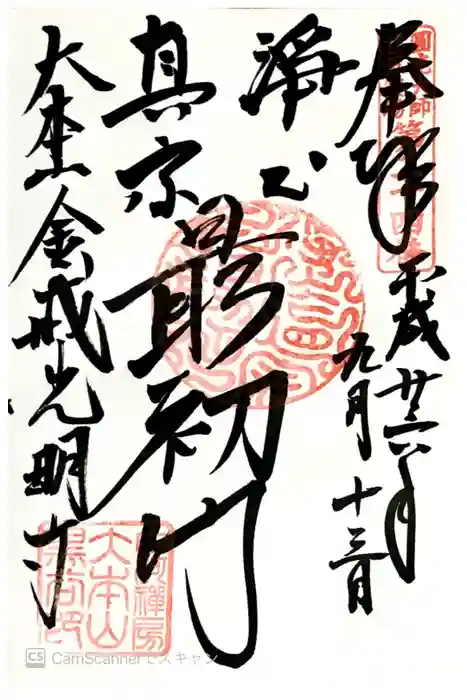 奉拝
平成廿六年
九月十三日
淨土
真宗
最初門
大本山金戒光明寺
大本山
CS CamScannerでスキャン